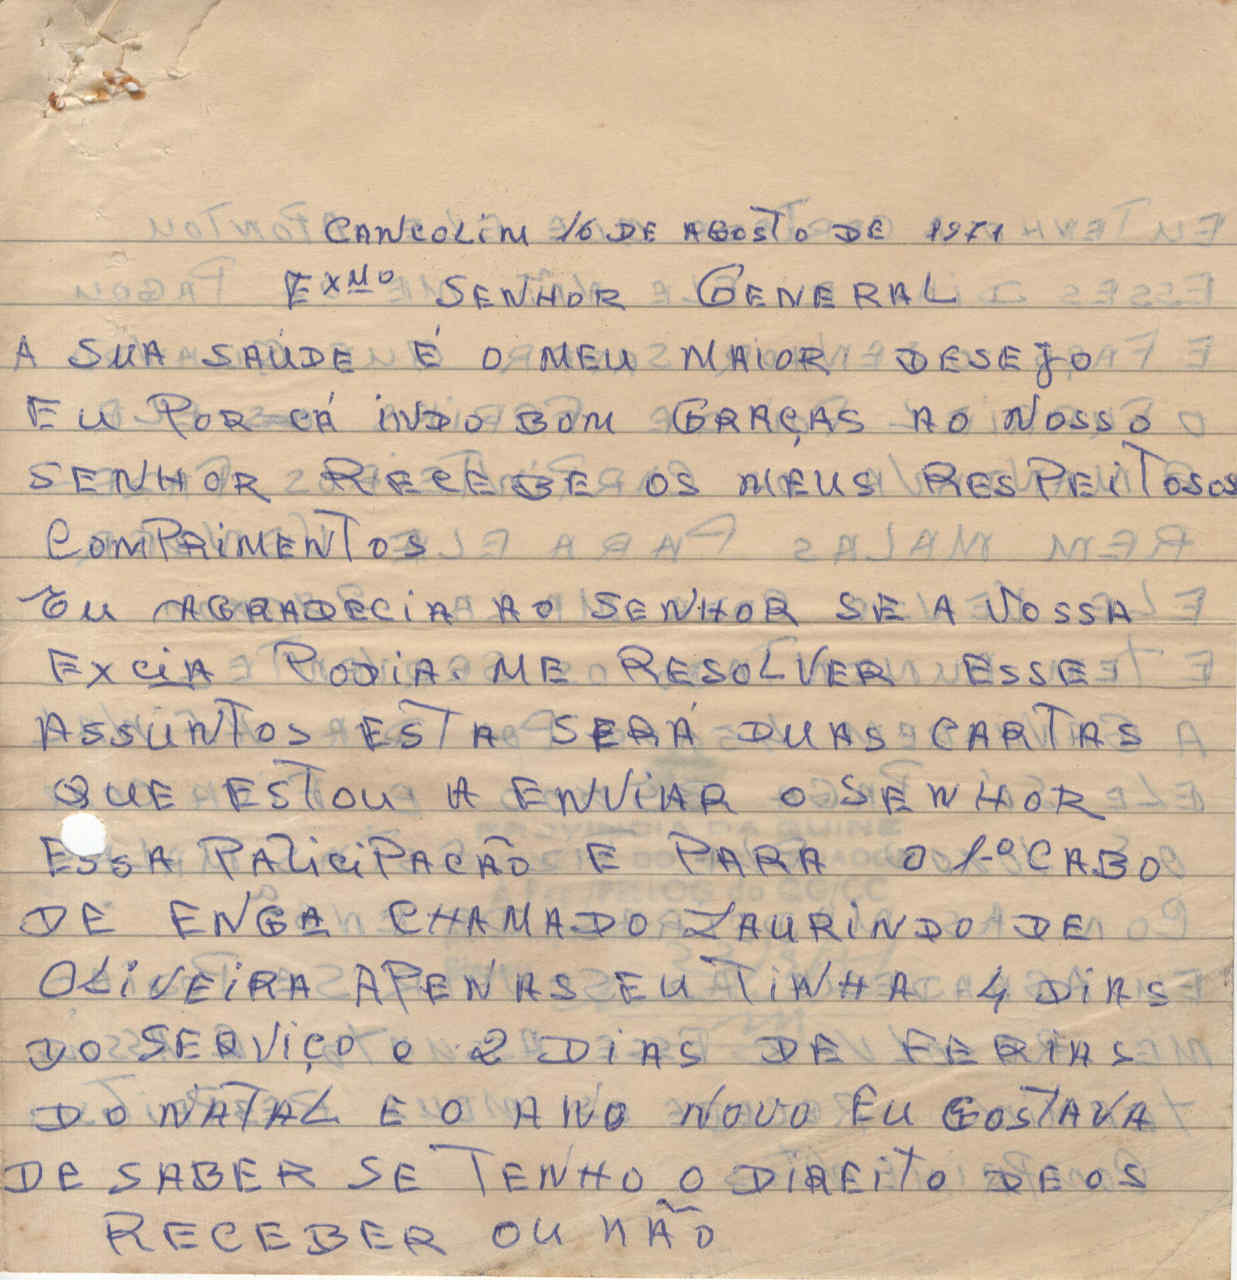 CANCOLIM 16 DE AGOSTO DE 1971
EXMO SENHOR GENERAL
A SUA SAÚDE É O MEU MAIOR DESEJO
EU POR CÁ INDO BOM GRAÇAS AO NOSSO
SENHOR RECEBE OS MEUS RESPEITOSOS
COMPRIMENTOS
EU AGRADECIA AO SENHOR SE A VOSSA
EXCIA PODIA ME RESOLVER ESSE
ASSUNTOS ESTA SERÁ DUAS CARTAS
QUE ESTOU A ENVIAR O SENHOR
ESSA PATICIPACÃO E PARA O 1.º CABO
DE ENGA CHAMADO LAURINDO DE
OLIVEIRA APENAS EU TINHA 4 DIAS
DO SERVIÇO O 2 DIAS DE FERIAS
DO NATAL E O ANO NOVO EU GOSTAVA
DE SABER SE TENHO O DIREITO DE OS
RECEBER OU NÃO